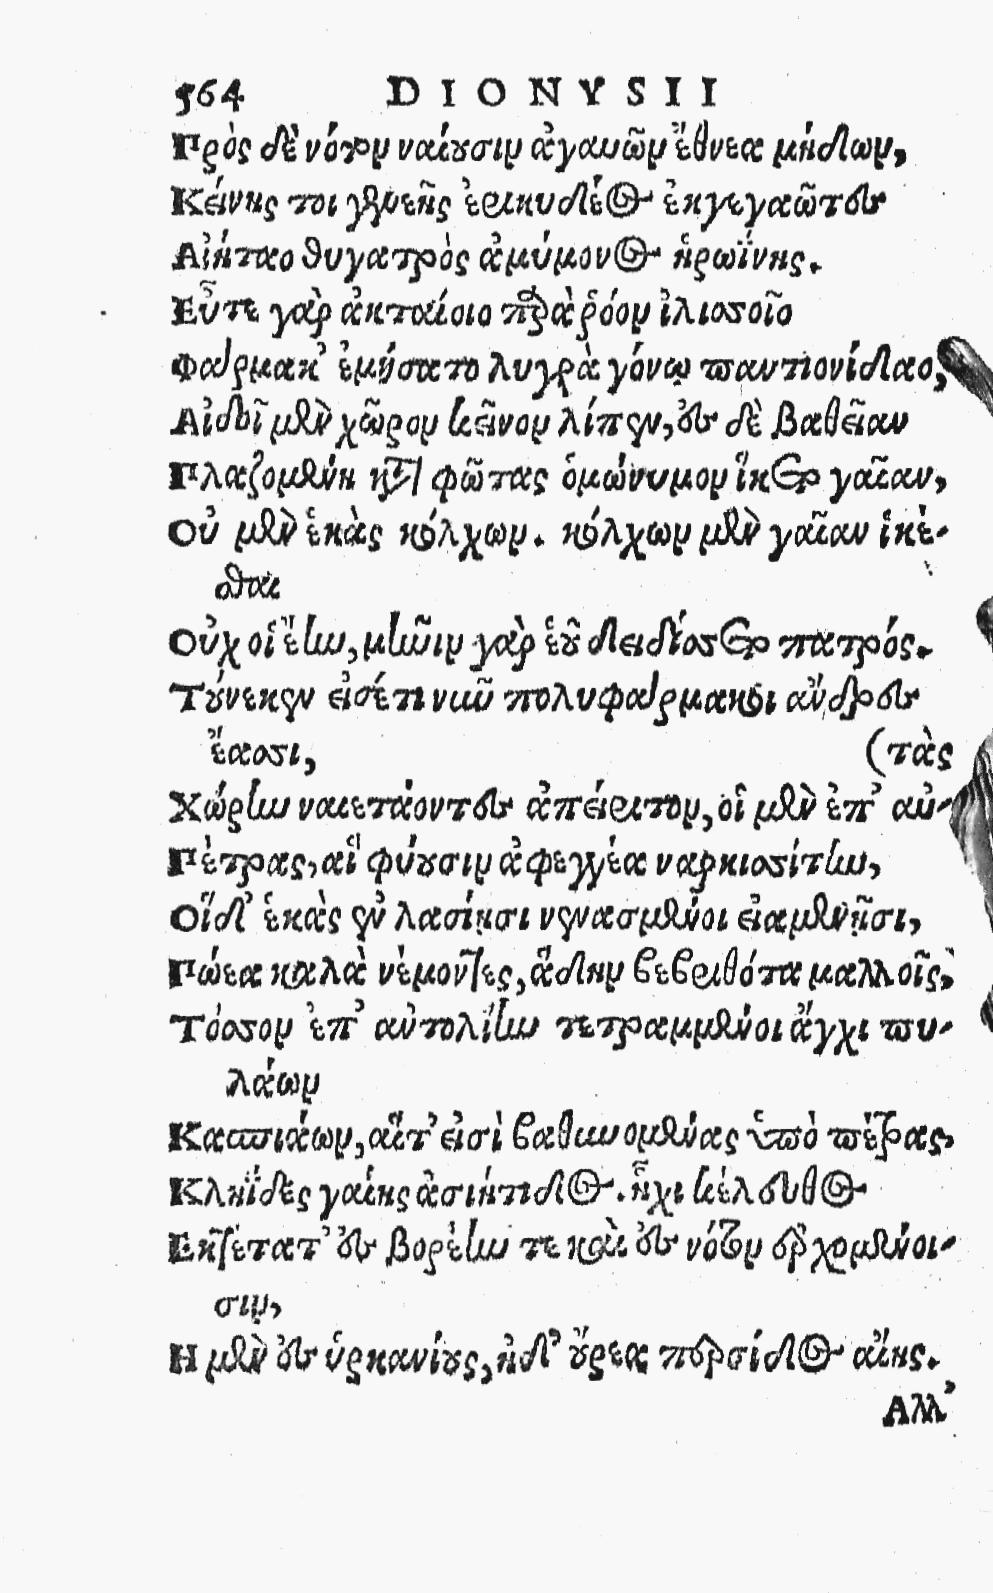 564 DIONYSII
Πρὸς δὲ νότον ναίουσιν ἀγαυῶν ἔθνεα μήδων,
Κείνης τοι γενεῆς ἐρικυδέος ἐκγεγαῶτες
Αἰήταο θυγατρὸς ἀμύμονος ἡρωΐνης.
Εὖτε γὰρ ἀκταίοιο παρὰ ῥόον ἰλισσοῖο
Φάρμακ' ἐμήσατο λυγρὰ γόνῳ παντιονίδαο,
Αἰδοῖ μὲν χῶρον κεῖνον λίπεν, ἐς δὲ βαθεῖαν
Πλαζομένη κατὰ φῶτας ὁμώνυμον ἵκετο γαῖαν,
Οὐ μὲν ἑκὰς κόλχων. κόλχων μὲν γαῖαν ἱκέ-
σθαι
Οὐχ οἱ ἔην, μῆνιν γὰρ ἑοῦ δειδίσσετο πατρός.
Τούνεκεν εἰσέτι νῦν πολυφάρμακοι ἄνδρες
ἔασσι, (τὰς
Χώρην ναιετάοντες ἀπείριτον, οἱ μὲν ἐπ' αὐ-
Πέτρας, αἳ φύουσιν ἀφεγγέα ναρκισσίτην,
Οἵδ' ἑκὰς ἐν λασίῃσι νενασμένοι εἱαμενῇσι,
Πώεα καλὰ νέμοντες, ἄδην βεβριθότα μαλλοῖς,
Τόσσον ἐπ' αὐτολίην τετραμμένοι ἄγχι πυ-
λάων
Κασπιάων, αἵτ' εἰσὶ βαθυνομένας ὑπὸ πέτρας,
Κληῗδες γαίης ἀσιήτιδος. ἧχι κέλευθος
Εκτέτατ' ἐς βορέην τε καὶ ἐς νότον ἐρχομένοι-
σιν,
Η μὲν ἐς ὑρκανίους, ἡδ' οὔρεα περσίδος αἴης.
Αλλ'